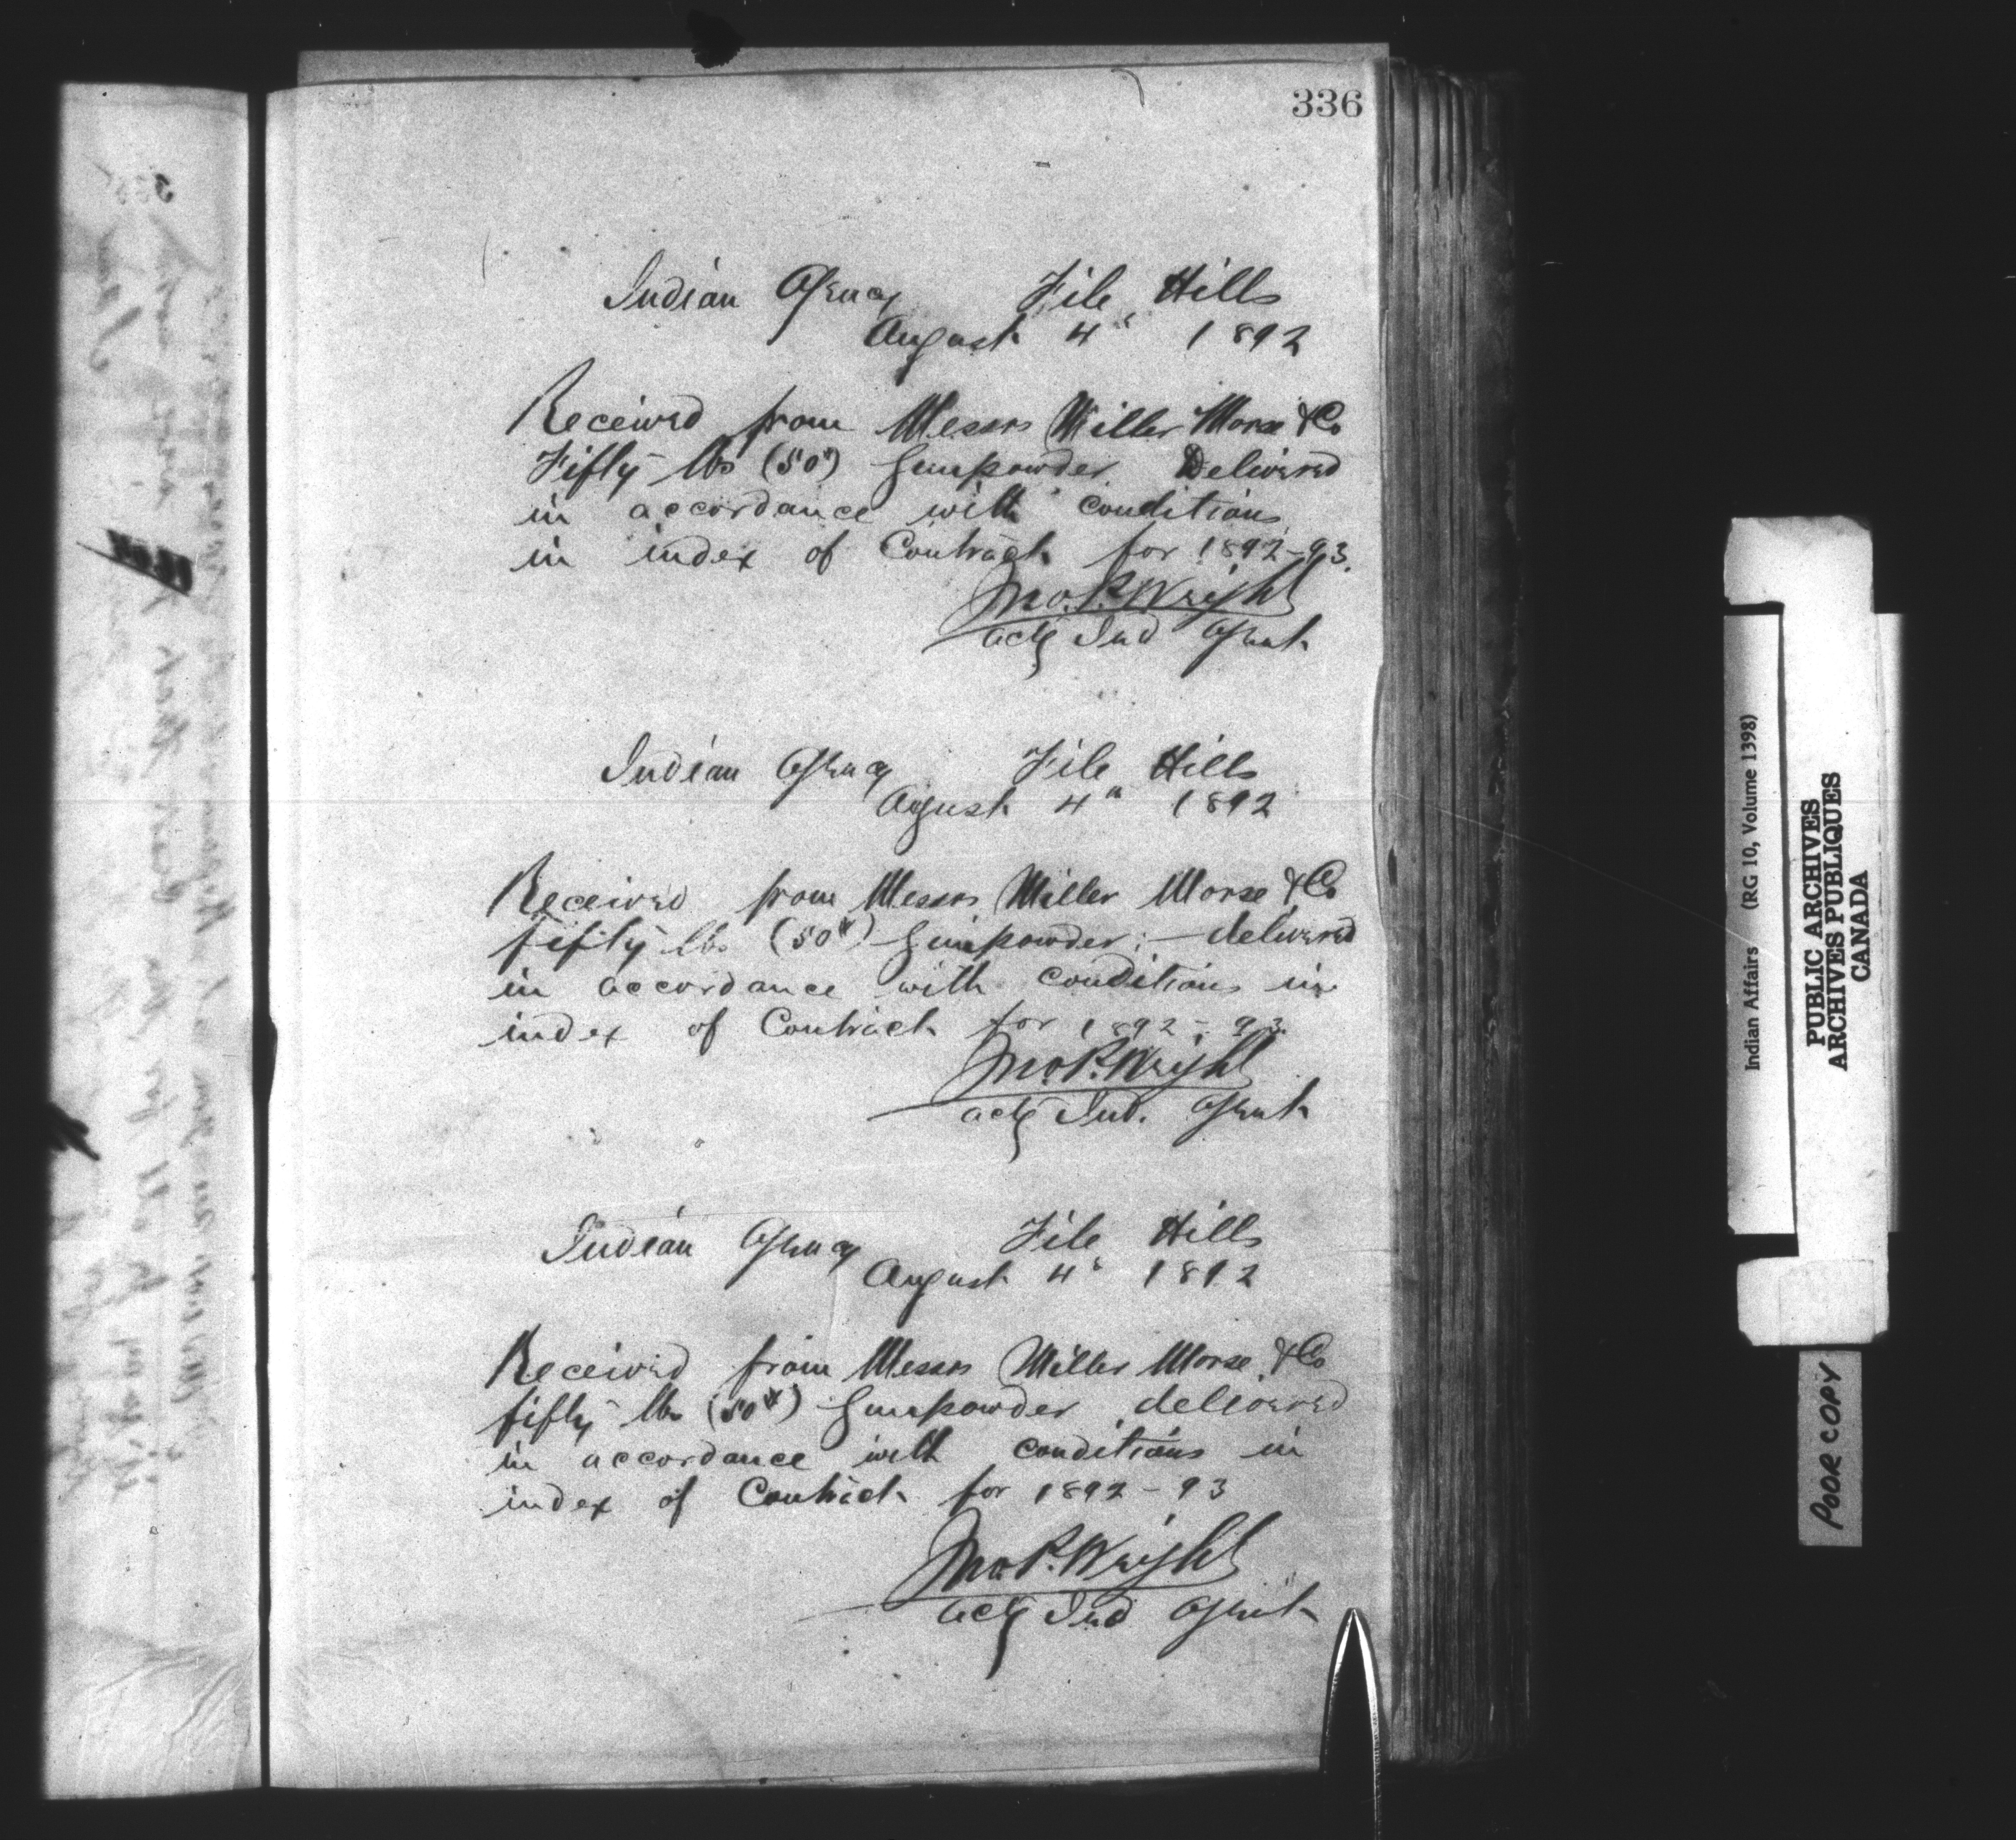 336
Indian Agency File Hills
August 4" 1892
Received from Messrs Miller Morse & Co
Fifty lbs (50#) Gunpowder Delivered
in accordance with conditions
in index of Contract for 1892-93.
Jno. P. Wright
actg Ind Agent
Indian Agency File Hills
August 4" 1892
Received from Messrs Miller Morse & Co
fifty lbs (50#) Gunpowder; — delivered
in accordance with conditions in
index of Contract for 1892-93.
Jno P. Wright
actg Ind. Agent
Indian Agency File Hills
August 4" 1892
Received from Messrs Miller Morse & Co
fifty lbs (50#) Gunpowder delivered
in accordance with conditions in
index of Contract for 1892-93
Jno P. Wright
actg Ind Agent
Indian Affairs (RG 10, Volume 1398)
PUBLIC ARCHIVES
ARCHIVES PUBLIQUES
CANADA
POOR COPY